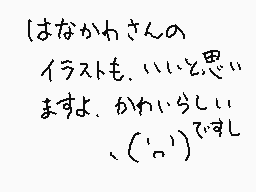 はなかわさんの
イラストも、いいと思い
ますよ、かわいらしい
ですし
、('∩')